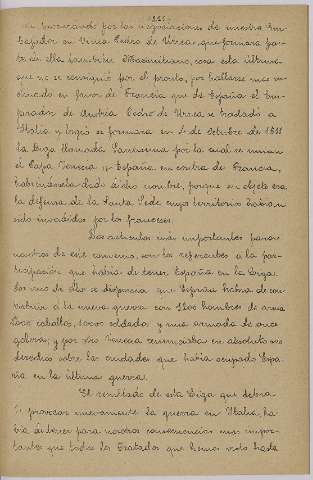 115
procurando por las negociaciones de nuestro Em-
bajador en Venecia Pedro de Urrea, que formara par-
te en ella tambien Maximiliano, cosa esta última
que no se consiguió por el pronto, por hallarse más in-
clinado en favor de Francia que de España el Em-
perador de Austria. Pedro de Urrea se trasladó a
Italia y logró se formara en 4 de Octubre de 1511
la Liga llamada Santísima por la cual se unian
el Papa Venecia y España en contra de Francia,
habiendosela dado dicho nombre, porque su objeto era
la defensa de la Santa Sede cuyos territorios habian
sido invadidos por los franceses.
Los articulos más importantes para
nosotros de este convenio, son los referentes a la par-
ticipación que habia de tener España en la Liga.
Por uno de ellos se disponia que España habia de con-
tribuir a la nueva guerra con 1200 hombres de armas
1000 caballos, 10000 soldados y una armada de once
galeras; y por otro Venecia renunciaba en absoluto sus
derechos sobre las ciudades que habia ocupado Espa-
ña en la última guerra.
El resultado de esta Liga que debia
provocar nuevamente la guerra en Italia, ha-
bia de tener para nosotros consecuencias más impor-
tantes que todos los Tratados que hemos visto hasta